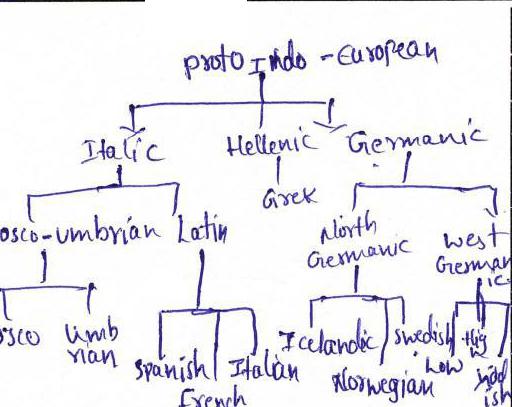 proto Indo - European
Italic Hellenic Germanic
Grek
osco-umbrian Latin North Germanic West German ic
osco Umb rian Spanish French Italian Icelandic Norwegian Swedish Low Hig